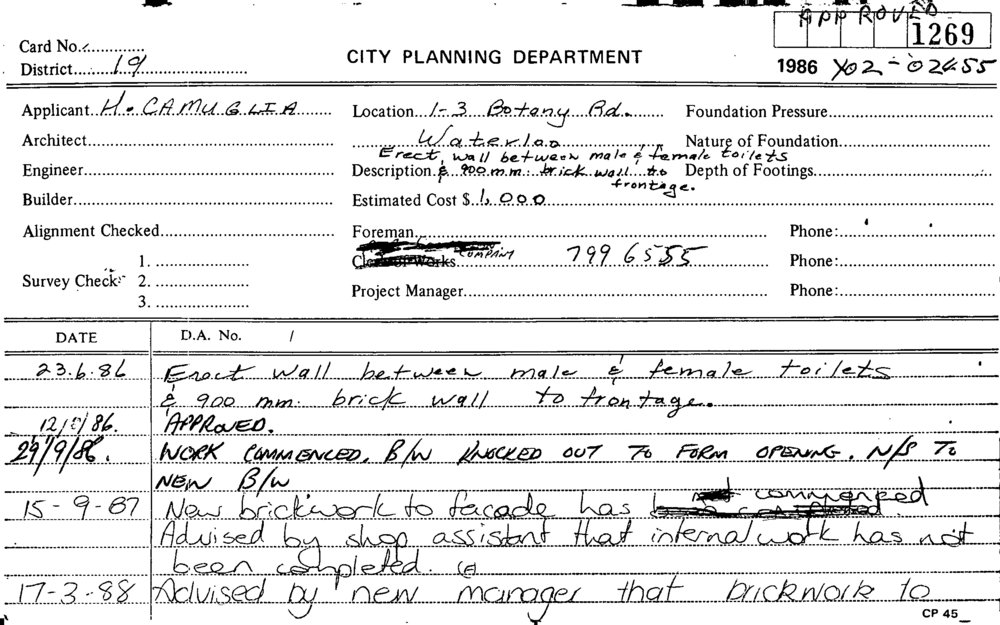 APPROVED
1269
Card No.
District 19
CITY PLANNING DEPARTMENT
1986 Y02-02455
Applicant H. CAMUGLIA
Location 1-3 Botany Rd.
Foundation Pressure
Architect
Waterloo
Nature of Foundation
Erect wall between male & female toilets
Engineer
Description & 900 mm. brick wall to frontage.
Depth of Footings
Builder
Estimated Cost $ 1,000
Alignment Checked
Foreman
Phone:
Survey Check:
1.
2.
3.
Clerk of Works COMPANY 799 6555
Phone:
Project Manager
Phone:
DATE
D.A. No. /
23.6.86 Erect wall between male & female toilets
& 900 mm. brick wall to frontage.
12/8/86. APPROVED.
29/9/86. WORK COMMENCED. B/W KNOCKED OUT TO FORM OPENING. N/S TO
NEW B/W
15-9-87 New brickwork to facade has not commenced
Advised by shop assistant that internal work has not
been completed.
17-3-88 Advised by new manager that brickwork to
CP 45